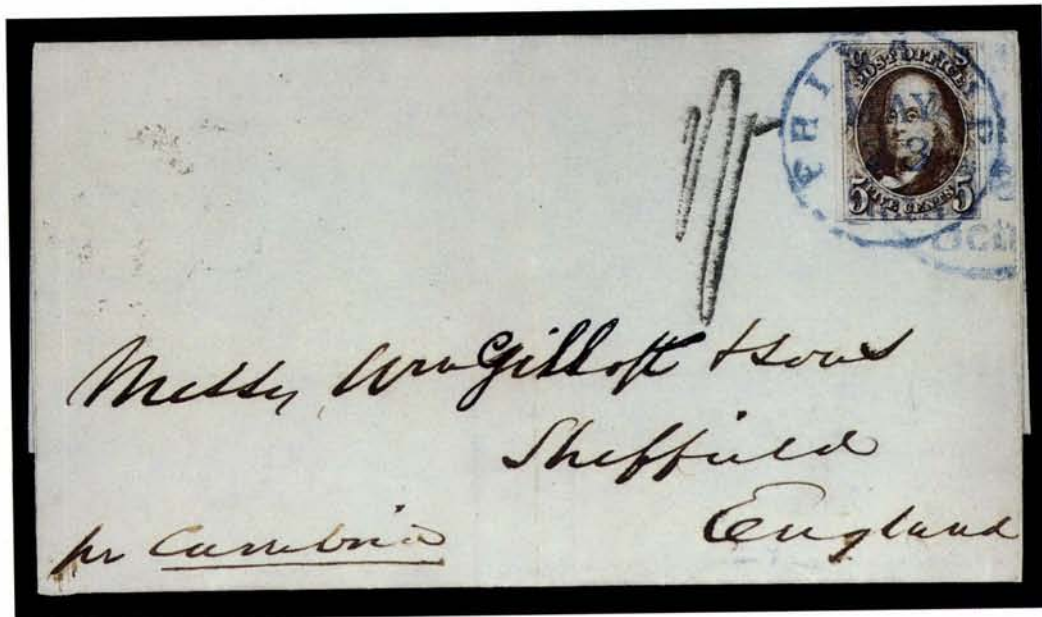 POST OFFICE
MAY
3
5 FIVE CENTS 5
Messrs Wm Gillott & Sons
Sheffield
England
pr Cambria